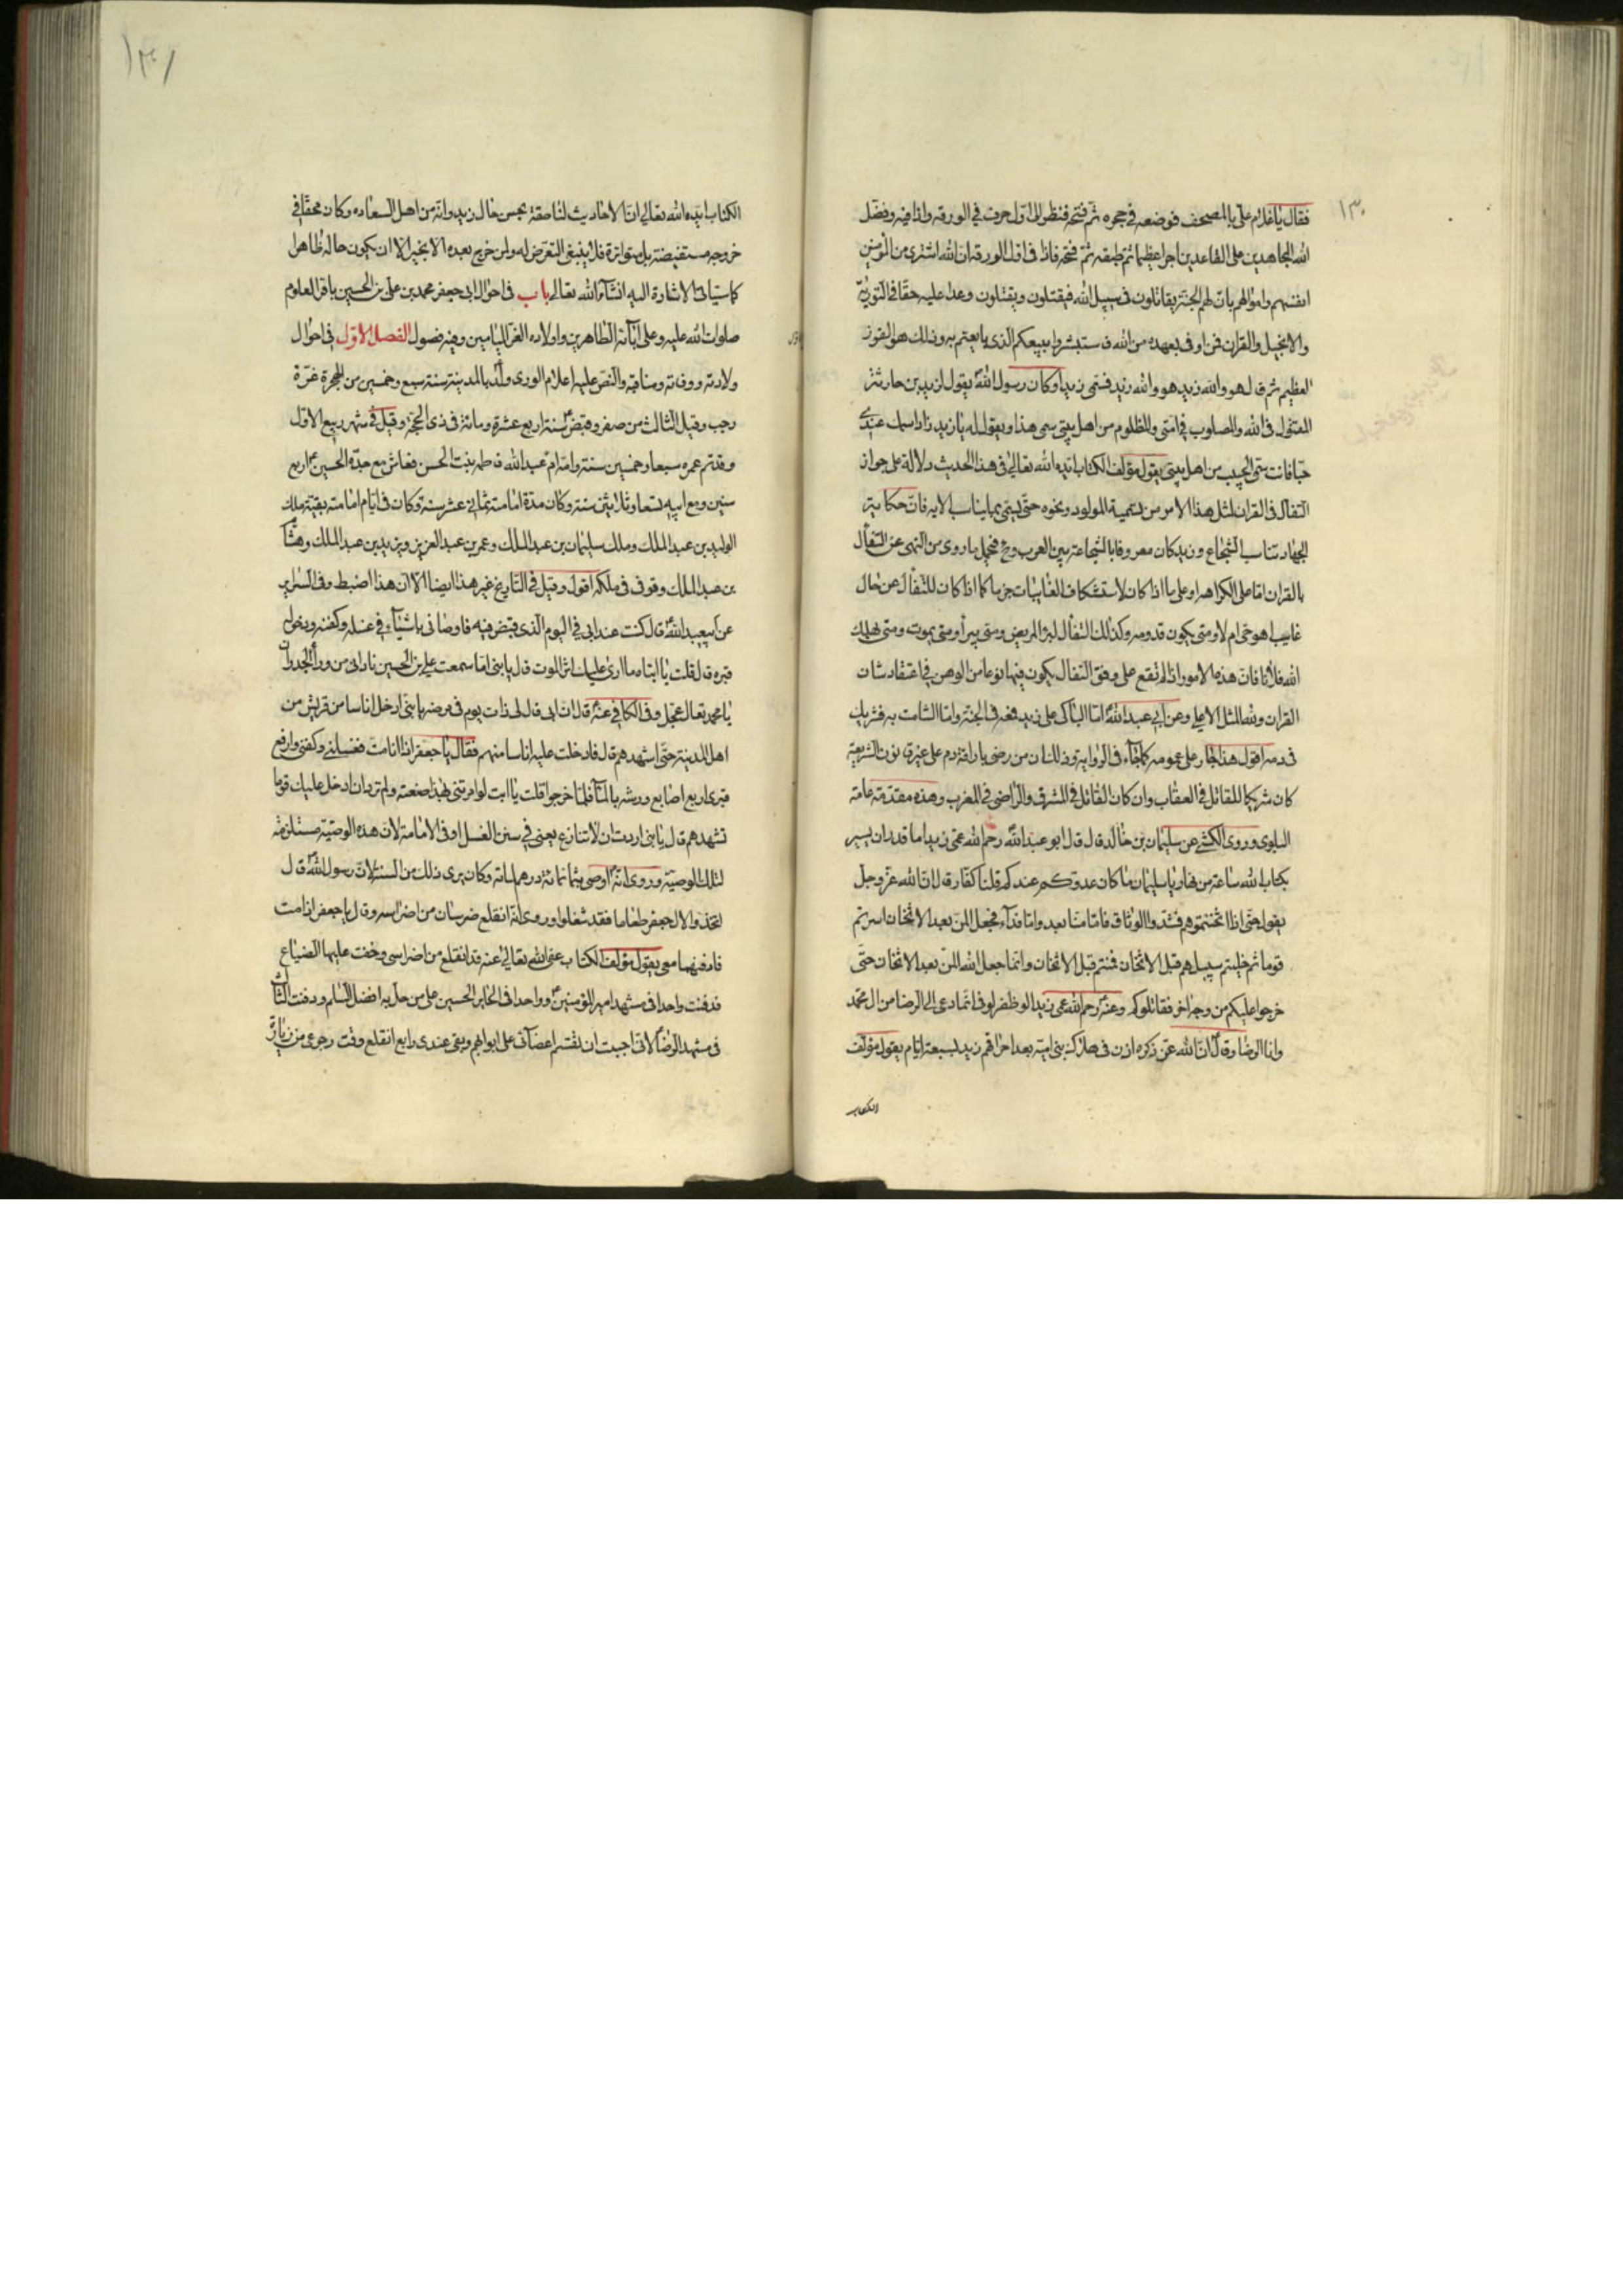 ١٣٠
فقال يا غلام علىّ بالمصحف فوضعه فى حجره ثم فتحه فنظر الى اول حرف فى الورقه واذا فيه وفضّل
الله المجاهدين على القاعدين اجرا عظيما ثم طبقه ثم فتحه فاذا فى اول الورقه ان الله اشترى من المؤمنين
انفسهم واموالهم بان لهم الجنة يقاتلون فى سبيل الله فيقتلون ويقتلون وعدا عليه حقا فى التورية
والانجيل والقران فمن اوفى بعهده من الله فاستبشروا ببيعكم الذى بايعتم به وذلك هو الفوز
العظيم ثم قال هو والله زيد هو والله زيد فسمى زيدا وكان رسول الله يقول لزيد بن حارثة
المقتول فى الله والمصلوب فى امتى والمظلوم من اهل بيتى سمى هذا ويقول له يا زيد زاد اسمك عندى
حبا فانت سمى الحبيب من اهل بيتى يقول مؤلف الكتاب ايده الله تعالى فى هذا الحديث دلالة على جواز
التفأل فى القران لمثل هذا الامر من تسمية المولود ونحوه حتى يسمى بما يناسب الايه فان حكاية
الجهاد تناسب الشجاع وزيد كان معروفا بالشجاعة بين العرب وح فيحمل ما روى من النهى عن التفأل
بالقران اما على الكراهه او على ما اذا كان لاستكشاف الغايبات جزما كما اذا كان للتفأل عن حال
غايب اهو حى ام لا ومتى يكون قدومه وكذلك التفأل لبرؤ المريض ومتى يبرأ ومتى يموت ومتى يهلك
الله فلانا فان هذه الامور اذا لم تقع على وفق التفأل يكون فيها نوعا من الوهن فى اعتقاد شان
القران ولله المثل الاعلى وعن ابى عبد الله اما الباكى على زيد فمعه فى الجنة واما الشامت به فشريك
فى دمه اقول هذا الجار على عمومه كما جاء فى الرواية وذلك ان من رضى باراقة دم على غير قانون الشريعة
كان شريكا للقاتل فى العقاب وان كان القاتل فى المشرق والراضى فى المغرب وهذه مقدمة عامة
البلوى وروى الكشى عن سليمان بن خالد قال قال ابو عبد الله رحم الله عمى زيدا ما قدر ان يسير
بكتاب الله ساعة من نهار يا سليمان ما كان عدوكم عندكم قلنا كفار قال ان الله عز وجل
يقول حتى اذا اثخنتموهم فشدوا الوثاق فاما منا بعد واما فداء فجعل المن بعد الاثخان اسرتم
قوما ثم خليتم سبيلهم قبل الاثخان فمننتم قبل الاثخان وانما جعل الله المن بعد الاثخان حتى
خرجوا عليكم من وجه اخر فقاتلوكم وعنه رحم الله عمى زيدا لو ظفر لوفى انما دعى الى الرضا من ال محمد
وانا الرضا وقال ان الله عز ذكره اذن فى هلاك بنى امية بعد احراقهم زيدا بسبعة ايام يقول مؤلف
الكتاب
١٣١
الكتاب ايده الله تعالى ان الاحاديث لناصة بحسن حال زيد وانه من اهل السعاده وكان محقا فى
خروجه مستفيضة بل متواترة فلا ينبغى التعرض له ولمن خرج بعده الا بخير الا ان يكون حاله ظاهرا
كما ستاتى الاشارة اليه انشاء الله تعالى باب فى احوال ابى جعفر محمد بن على بن الحسين باقر العلوم
صلوات الله عليه وعلى ابائه الطاهرين واولاده الغر الميامين وفيه فصول الفصل الاول فى احوال
ولادته ووفاته ومناقبه والنص عليه اعلام الورى ولد بالمدينة سنة سبع وخمسين من الهجرة غرة
رجب وقيل الثالث من صفر وقبض سنة اربع عشرة ومائة فى ذى الحجة وقيل فى شهر ربيع الاول
وقد تم عمره سبعا وخمسين سنة وامه ام عبد الله فاطمه بنت الحسن فعاش مع جده الحسين اربع
سنين ومع ابيه تسعا وثلاثين سنة وكان مدة امامته ثمانى عشر سنة وكان فى ايام امامته بقية ملك
الوليد بن عبد الملك وملك سليمان بن عبد الملك وعمر بن عبد العزيز ويزيد بن عبد الملك وهشام
بن عبد الملك وتوفى فى ملكه اقول وقيل فى التاريخ غير هذا ايضا الا ان هذا اضبط وفى البصاير
عن ابيعبد الله قال كنت عند ابى فى اليوم الذى قبض فيه فاوصانى باشياء فى غسله وكفنه ودخول
قبره قال قلت يا ابتاه ما ارى عليك اثر الموت قال يا بنى اما سمعت على بن الحسين نادانى من وراء الجدران
يا محمد تعال عجل وفى الكافى عنه قال ان ابى قال لى ذات يوم فى مرضه يا بنى ادخل اناسا من قريش من
اهل المدينة حتى اشهدهم قال فادخلت عليه اناسا منهم فقال يا جعفر اذا انا مت فغسلنى وكفنى وارفع
قبرى اربع اصابع ورشه بالماء فلما خرجوا قلت يا ابت لو امرتنى بهذا صنعته ولم ترد ان ادخل عليك قوما
تشهدهم قال يا بنى اردت ان لا تنازع يعنى فى سنن الغسل او فى الامامة لان هذه الوصية مستلزمة
لتلك الوصية وروى انه اوصى بثمانمائة درهم لماتمه وكان يرى ذلك من السنة لان رسول الله قال
اتخذوا لال جعفر طعاما فقد شغلوا وروى انه انقلع ضرسان من اضراسه وقال يا جعفر اذا مت
فادفنهما معى يقول مؤلف الكتاب عفى الله تعالى عنه قد انقلع من اضراسى وخفت عليها الضياع
فدفنت واحدا فى مشهد امير المؤمنين وواحدا فى الحاير الحسين على من حل به افضل السلم ودفنت الثالث
فى مشهد الرضا لانى احببت ان تقسم اعضائى على ابوابهم وبقى عندى رابع انقلع وقت رجوعى من زيارة